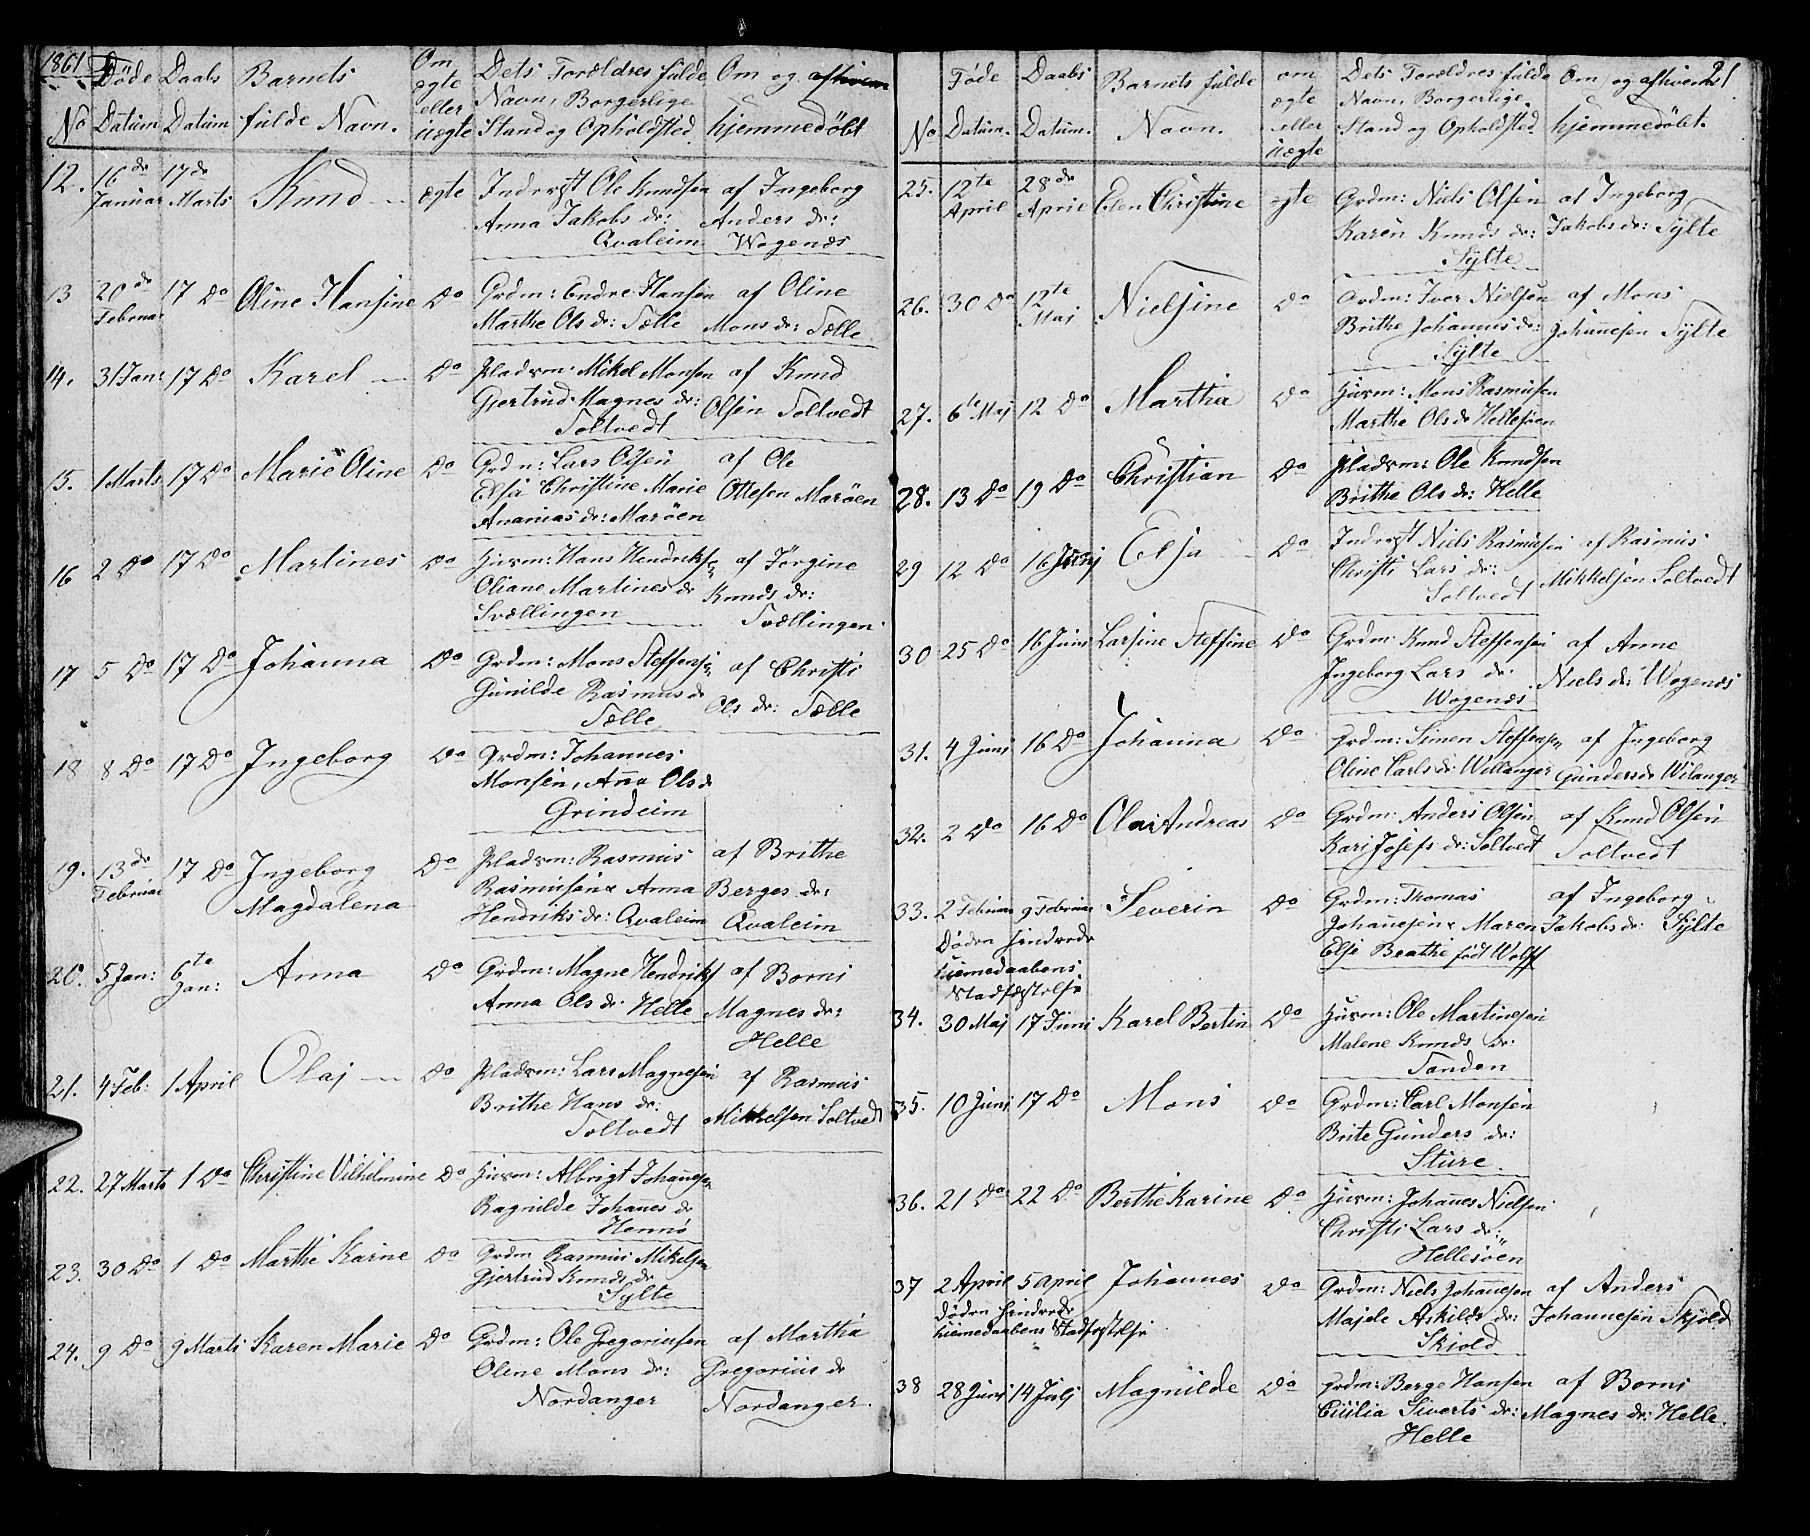 1861
Föde Daabs Barnets Om Dets Forældres fulde Om og af hvem
ægte Navn, Borgerlige
No Datum Datum fulde Navn. eller uægte Stand og Opholdsted. hjemmedöbt
12. 16de 17de Knud — ægte Inderst Ole Knudsen af Ingeborg
Januar Marts Anna Jakobs dr: Anders dr:
Qvaleim Wogenæs
13 20de 17 Do Oline Hansine Do Grdm: Endre Hansen af Oline
Februar Marthe Ols dr: Sælle Mons dr: Sælle
14. 31 Jan: 17 Do Karel — Do Pladsm: Mikel Monsen af Knud
Gjertrud Magnes dr: Olsen Toltvedt
Toltvedt
15. 1 Marts 17 Do Marie Oline Do Grdm: Lars Olsen af Ole
Elsa Christine Marie Ottesen Maröen
Ananias dr: Maröen
16 2 Do 17 Do Martines Do Huusm: Hans Hendriksen af Jörgine
Oliane Martines dr Knuds dr:
Svællingen Svællingen
17 5 Do 17 Do Johanna Do Grdm: Mons Steffensen af Christi
Gunilde Rasmus dr Ols dr: Sælle
Sælle
18 8 Do 17 Do Ingeborg Do Grdm: Johannes
Monsen, Anna Ols dr
Grindeim
19. 13de 17 Do Ingeborg Do Pladsm: Rasmus af Brithe
Februar Magdalena Rasmusen Anna Berges dr:
Hendriks dr: Qvaleim Qvaleim
20. 5 Jan: 6te Jan: Anna Do Grdm: Magne Hendriks af Borni
Anna Ols dr Helle Magnes dr:
Helle
21. 4 Feb: 1 April Olaj — Do Pladsm: Lars Magnesen af Rasmus
Brithe Hans dr: Mikkelsen Soltvedt
Toltvedt
22. 27 Marts 1 Do Christine Vilhelmine Do Huusm: Albrigt Johannesen
Ragnilde Johanes dr
Hennö
23. 30 Do 1 Do Marthe Karine Do Grdm Rasmus Mikelsen
Gjertrud Knuds dr
Sylte
24. 9 Do 9 Marts Karen Marie Do Grdm: Ole Gregoriusen af Martha
Oline Mons dr: Gregorius dr
Nordanger Nordanger.
21
Föde Daabs Barnets fulde om Dets Forældres fulde Om og af hvem
ægte Navn, Borgerlige
No Datum. Datum. Navn. eller uægte Stand og Opholdsted. hjemmedöbt.
25. 12te 28de Elen Christine ægte Grdm: Niels Olsen af Ingeborg
April April Karen Knuds dr: Jakobs dr: Sylte
Sylte
26. 30 Do 12te Maj Nielsine Do Grdm: Iver Nielsen af Mons
Brithe Johannes dr: Johannesen Sylte
Sylte
27. 6te Maj 12 Do Martha Do Huusm: Mons Rasmusen
Marthe Ols dr Hellesöen
28. 13 Do 19 Do Christian Do Pladsm: Ole Knudsen
Brithe Ols dr: Helle
29 12 Do 16 Junj Elja Do Inderst Niels Rasmusen af Rasmus
Christi Lars dr: Mikkelsen Soltvedt
Soltvedt
30 25 Do 16 Juni Larsine Steffine Do Grdm: Knud Steffensen af Anne
Ingeborg Lars dr. Niels dr: Wogenæs
Wogenæs
31. 4 Juni 16 Do Johanna Do Grdm: Simen Steffensen af Ingeborg
Oline Carls dr: Willanger Gunders dr Wilanger
32. 2 Do 16 Do Olai Andreas Do Grdm: Anders Olsen af Knud Olsen
Kari Josefs dr: Soltvedt Toltvedt
33. 2 Februar 9 Februar Severin Do Grdm: Thomas af Ingeborg
Johannesen Maren Jakobs dr: Sylte
Döden hindrede Elje Beathe født Wolff
hiemedaabens
Stadfæstelse
34. 30 Maj 17 Juni Karel Bertin Do Huusm: Ole Martinesen
Malene Knuds dr:
Sanden
35. 10 Juni 17 Do Mons Do Grdm: Carl Monsen
Brite Gunders dr:
Sture.
36. 21 Do 22 Do Berthe Karine Do Huusm: Johanes Nielsen
Christi Lars dr:
Hellesöen
37 2 April 5 April Johannes Do Grdm: Niels Johannesen af Anders
Döden hindrede Majele Askilds dr: Johannesen Skjold
hiemedaabens Stadfæstelse Skiold
38 28 Juni 14 Julj Magnilde Do Grdm: Berge Hansen af Borni
Cicilia Siverts dr: Magnes dr: Helle.
Helle